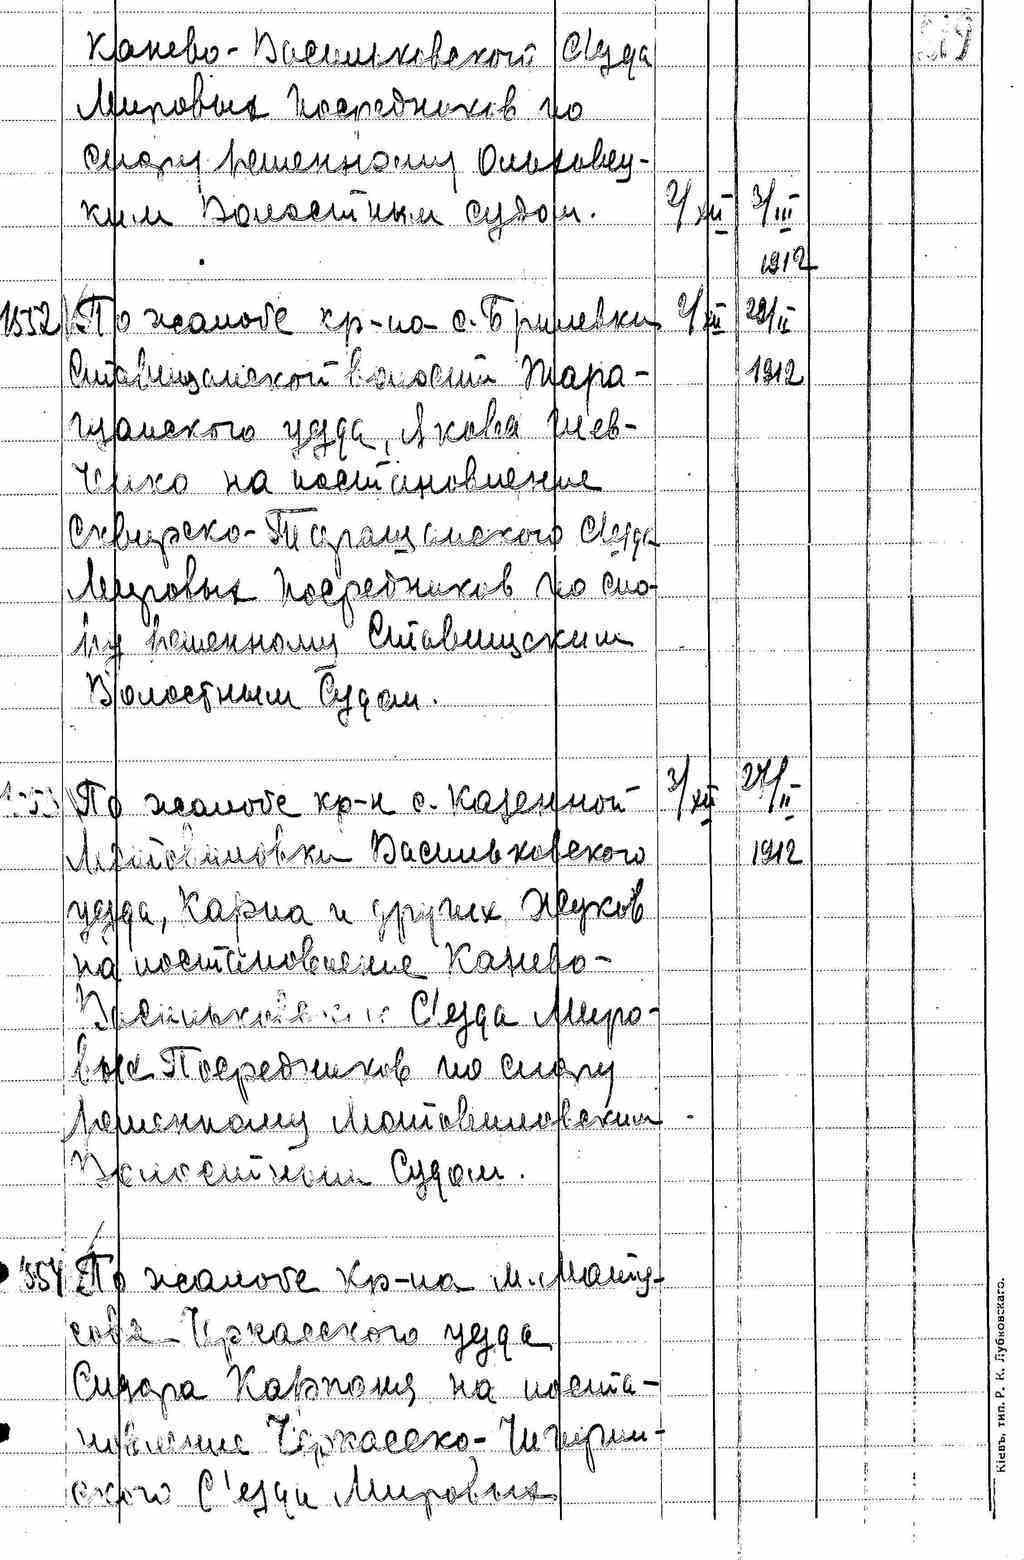 Канево-Васильковской С'езда
Мировых Посредников по
спору решенному Ольховец-
ким Волостным судом.
2/XII 3/III
1912
1552 По жалобе кр-на с. Брилевки
2/XII 29/II
Ставищанской волости Тара-
1912
щанского уезда, Якова Шев-
ченко на постановление
Сквирско-Таращанского С'езда
Мировых Посредников по спо-
ру решенному Ставищским
Волостным Судом.
По жалобе кр-н с. Казенной
3/XII 27/II
Мотовиловки Васильковского
1912
уезда, Карпа и других Жуков
на постановление Канево-
Васильковского С'езда Миро-
вых Посредников по спору
решенному Мотовиловским
Волостным Судом.
554 По жалобе кр-на м. Мату-
сова Черкасского уезда
Сидора Карпаня на поста-
новление Черкасско-Чигирин-
ского С'езда Мировых
Кіевъ, тип. Р. К. Лубковскаго.